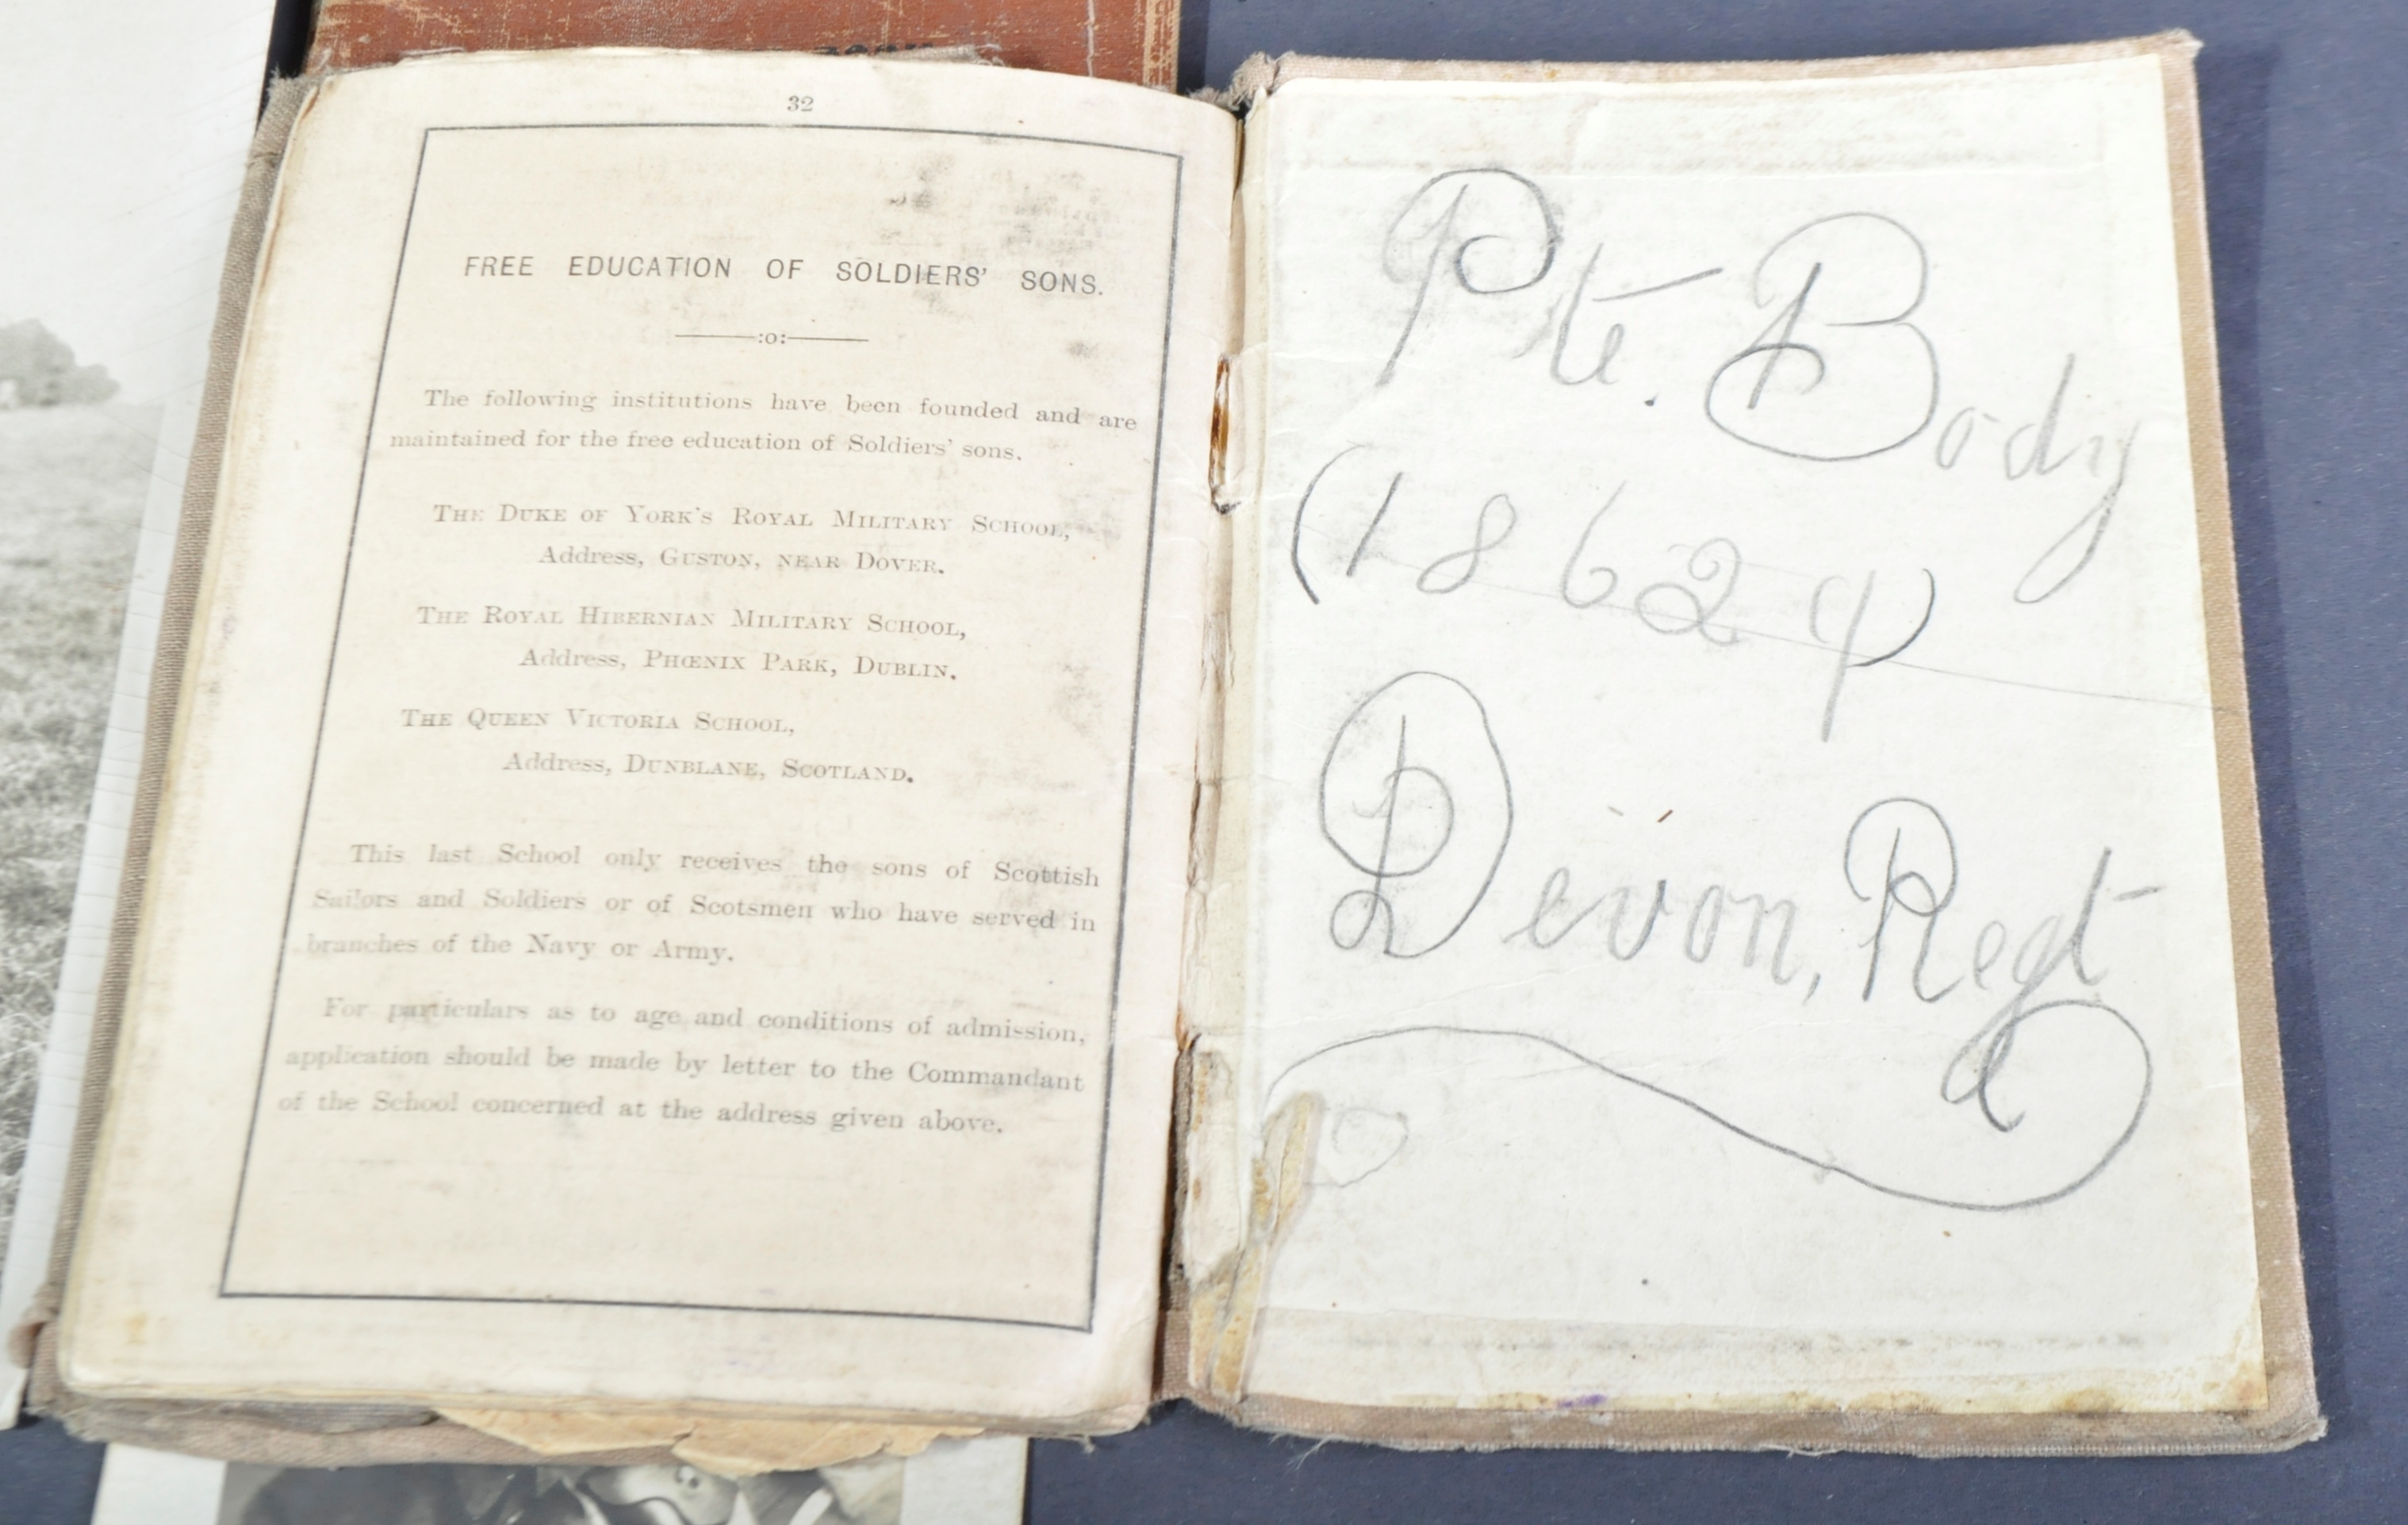 32
FREE EDUCATION OF SOLDIERS' SONS.
:o:
The following institutions have been founded and are
maintained for the free education of Soldiers' sons.
THE DUKE OF YORK'S ROYAL MILITARY SCHOOL,
Address, GUSTON, NEAR DOVER.
THE ROYAL HIBERNIAN MILITARY SCHOOL,
Address, PHŒNIX PARK, DUBLIN.
THE QUEEN VICTORIA SCHOOL,
Address, DUNBLANE, SCOTLAND.
This last School only receives the sons of Scottish
Sailors and Soldiers or of Scotsmen who have served in
branches of the Navy or Army.
For particulars as to age and conditions of admission,
application should be made by letter to the Commandant
of the School concerned at the address given above.
Pte. Body
(18624)
Devon, Regt